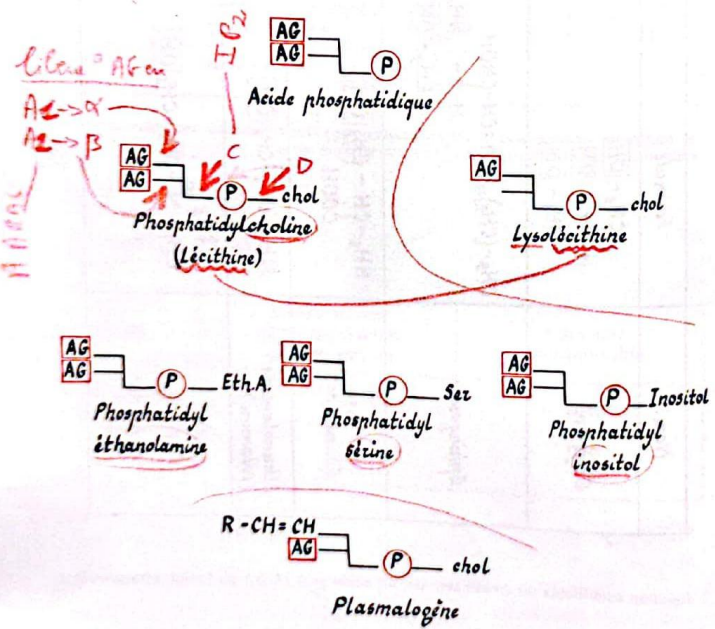 AG
AG
P
Acide phosphatidique
AG en
A1 → α
A2 → β
AG
AG
C
P
D
chol
Phosphatidylcholine
(Lécithine)
AG
P
chol
Lysolécithine
AG
AG
P
Eth.A.
Phosphatidyl
éthanolamine
AG
AG
P
Ser
Phosphatidyl
sérine
AG
AG
P
Inositol
Phosphatidyl
inositol
R - CH = CH
AG
P
chol
Plasmalogène